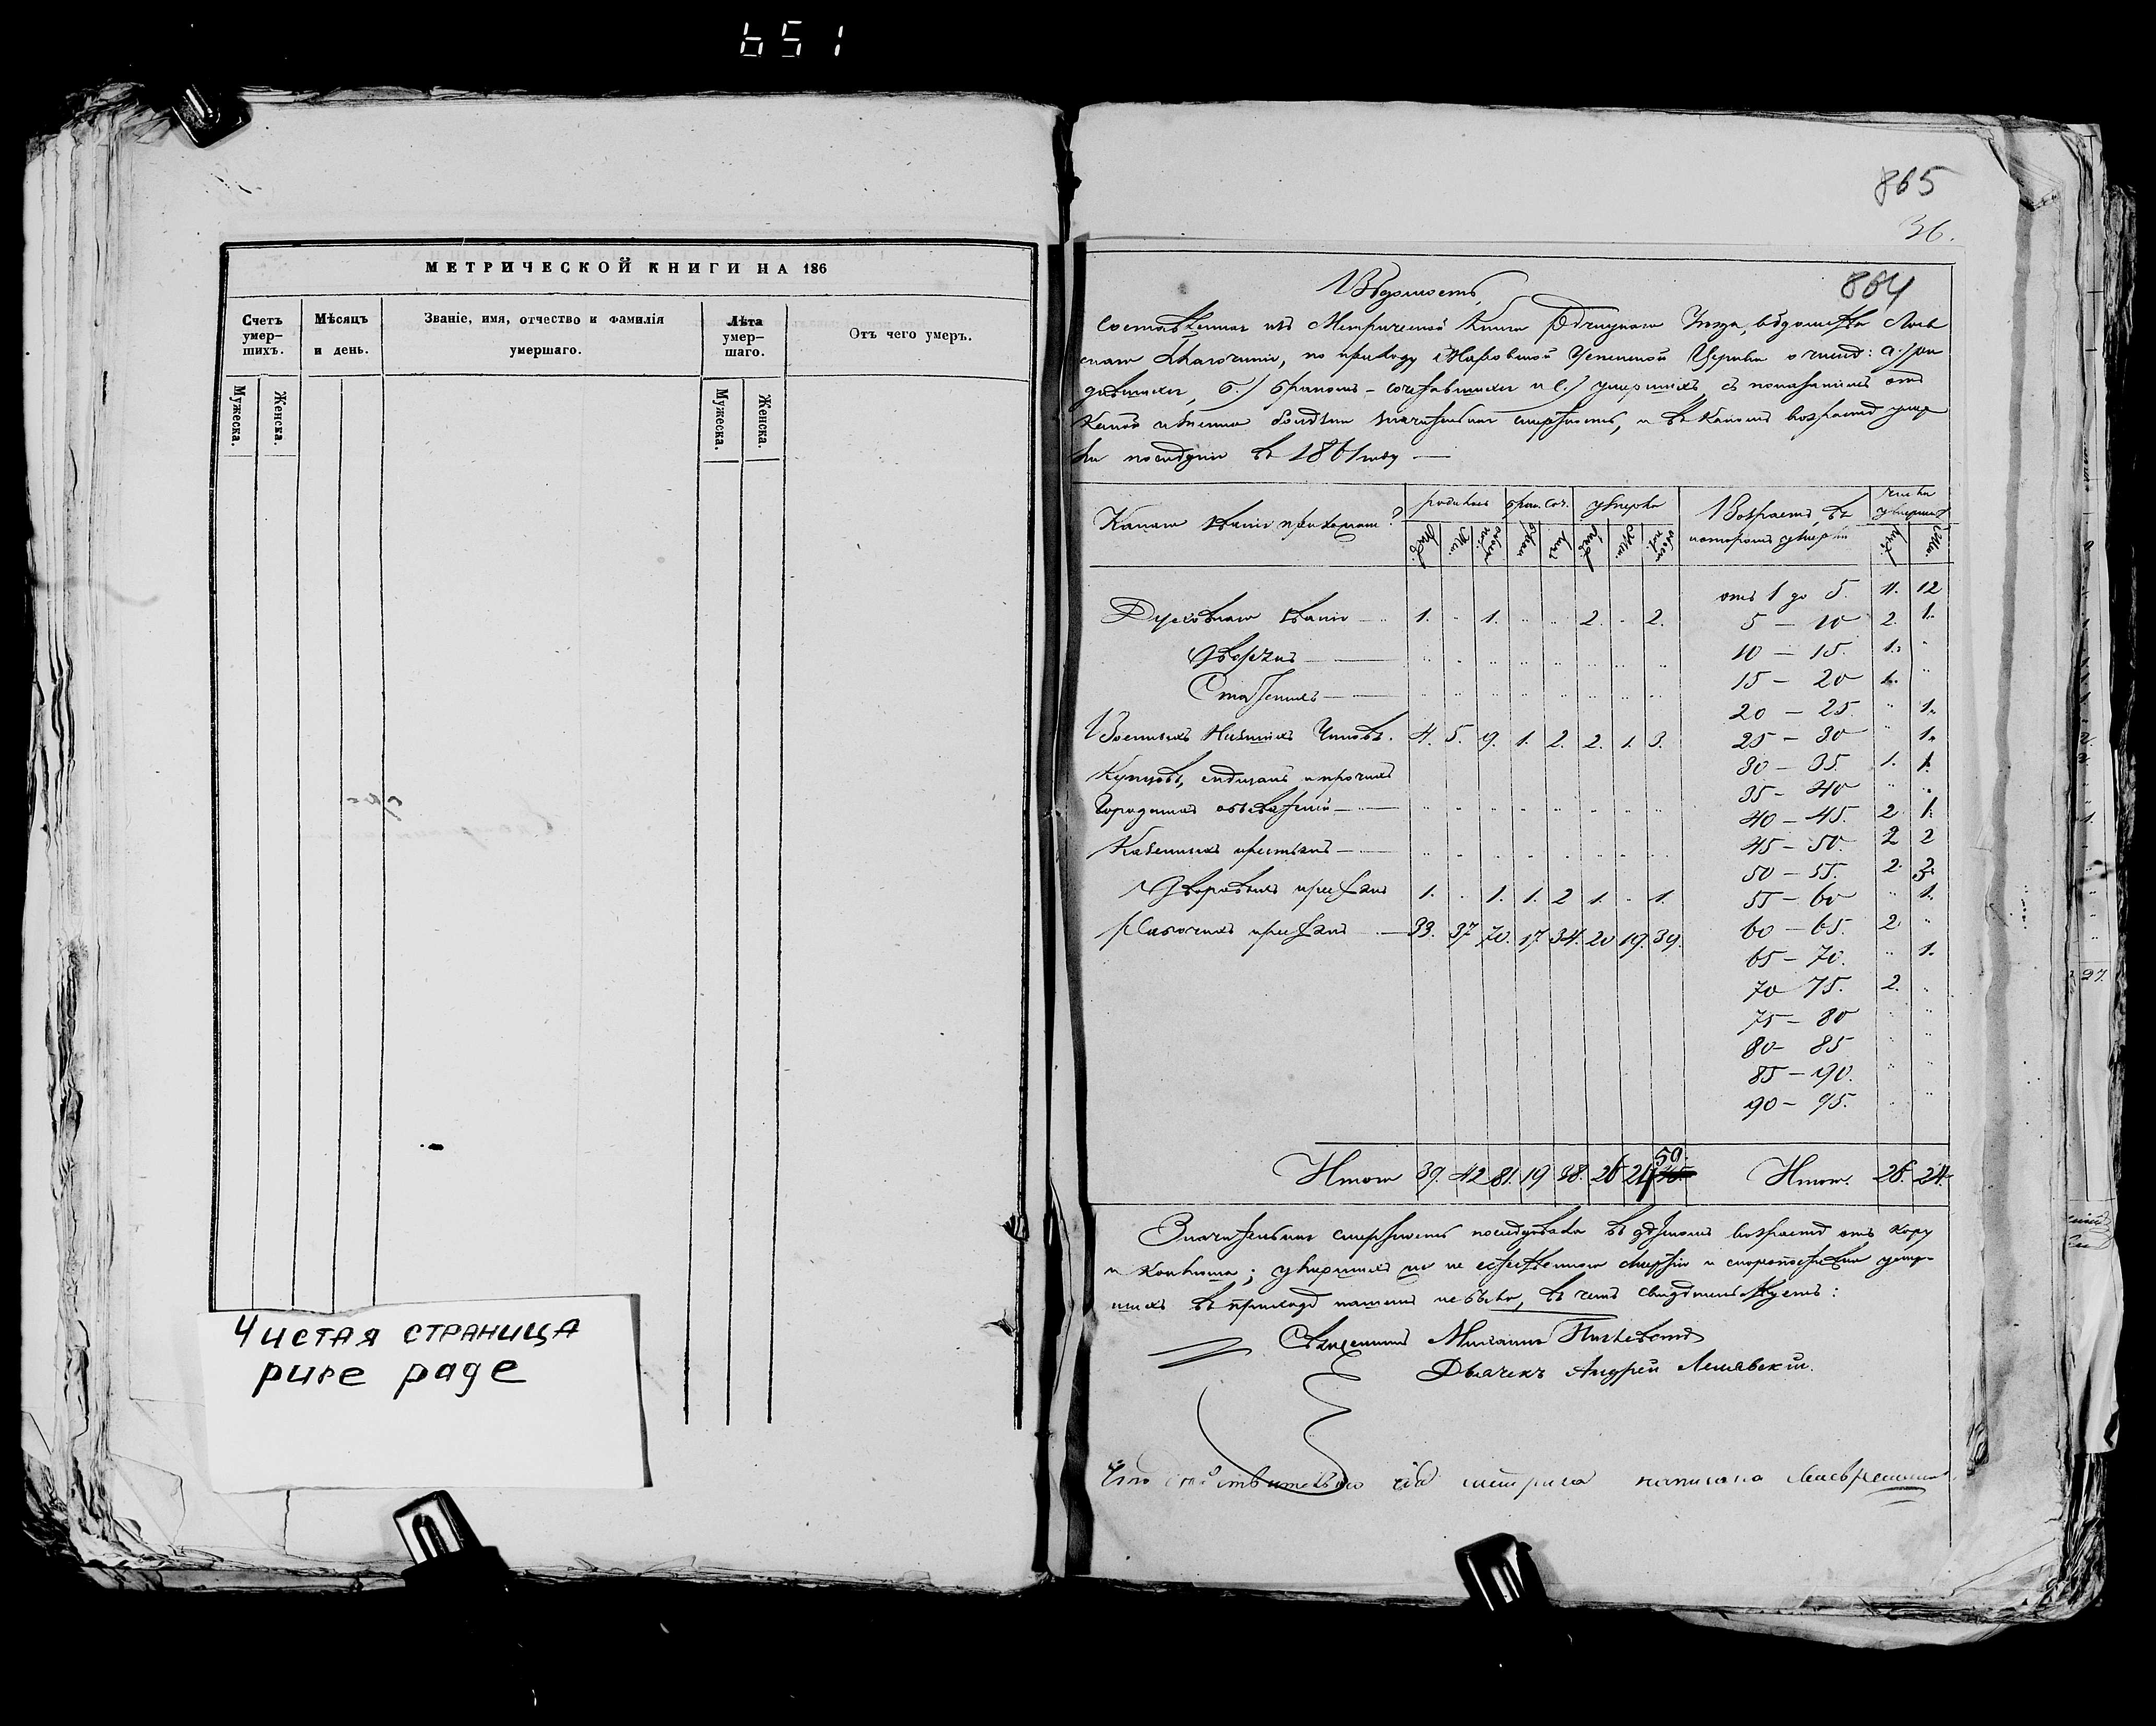 651
МЕТРИЧЕСКОЙ КНИГИ НА 186
Счетъ умер-шихъ.
Мѣсяцъ и день.
Званіе, имя, отчество и фамилія умершаго.
Лѣта умер-шаго.
Отъ чего умеръ.
Мужеска.
Женска.
Мужеска.
Женска.
Чистая страница
pure page
865
36.
864
Вѣдомость,
составленная изъ Метрической Книги уѣзда, вѣдомства
благочинія, по приходу Успенской Церкви о числѣ: а.) ро
дившихся, б.) бракомъ-сочетавшихся и в.) умершихъ, съ показаніемъ отъ
какой именно болѣзни значительная смертность, и въ какомъ возрастѣ умер
ли послѣдніе въ 1861 году —
Какого званія прихожане?
родилось
брак. соч.
умерло
Возрастъ, въ которомъ умерли
числа умершихъ
Духовнаго званія 1. .. 1. .. .. 2. .. 2.
Дворянъ
Военныхъ Нижнихъ Чиновъ. 4. 5. 9. 1. 2. 2. 1. 3.
Купцовъ, мѣщанъ и прочихъ
Городскихъ обывателей
Казенныхъ крестьянъ
Дворовыхъ крестьянъ 1. . 1. 1. 2 1. . 1.
крестьянъ 33. 37 70. 17 34. 20 19. 39.
отъ 1 до 5. 11. 12
5 — 10 2. 1.
10 — 15. 1. ..
15 — 20 1. ..
20 — 25. .. 1.
25 — 30 .. 1.
30 — 35. 1. 1.
35 — 40 .. ..
40 — 45. 2 1.
45 — 50. 2 2
50 — 55. 2. 3.
55 — 60 .. 1.
60 — 65. 2 ..
65 — 70. .. 1.
70 75. 2. ..
75 — 80
80 — 85
85 — 90.
90 — 95.
Итого 39. 42 81. 19 38. 26 24 50.
Итого. 26. 24.
Значительная смертность послѣдовала въ дѣтскомъ возрастѣ отъ кору
и коклюша; умершихъ не естественною смертію и скоропостижно умер-
шихъ въ приходѣ нашемъ не было, въ чемъ свидѣтельствуемъ:
Священникъ Михаилъ
Дьячекъ Андрей Лешавскій.
Что дѣйствительно сія метрика написана